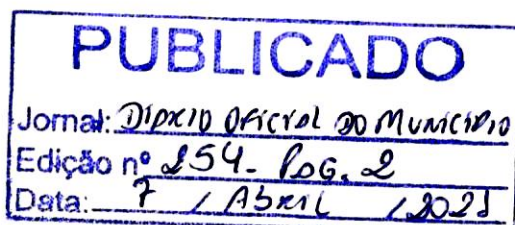 PUBLICADO
Jornal: Diário Oficial do Município
Edição nº 254 - Pag. 2
Data: 7 / Abril / 2021